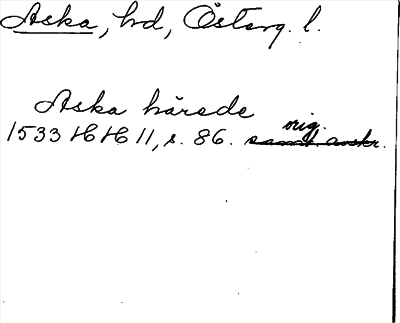 Aska, hd, Österg. l.
Aska härade
orig.
1533 HH 11, s. 86. samt. avskr.